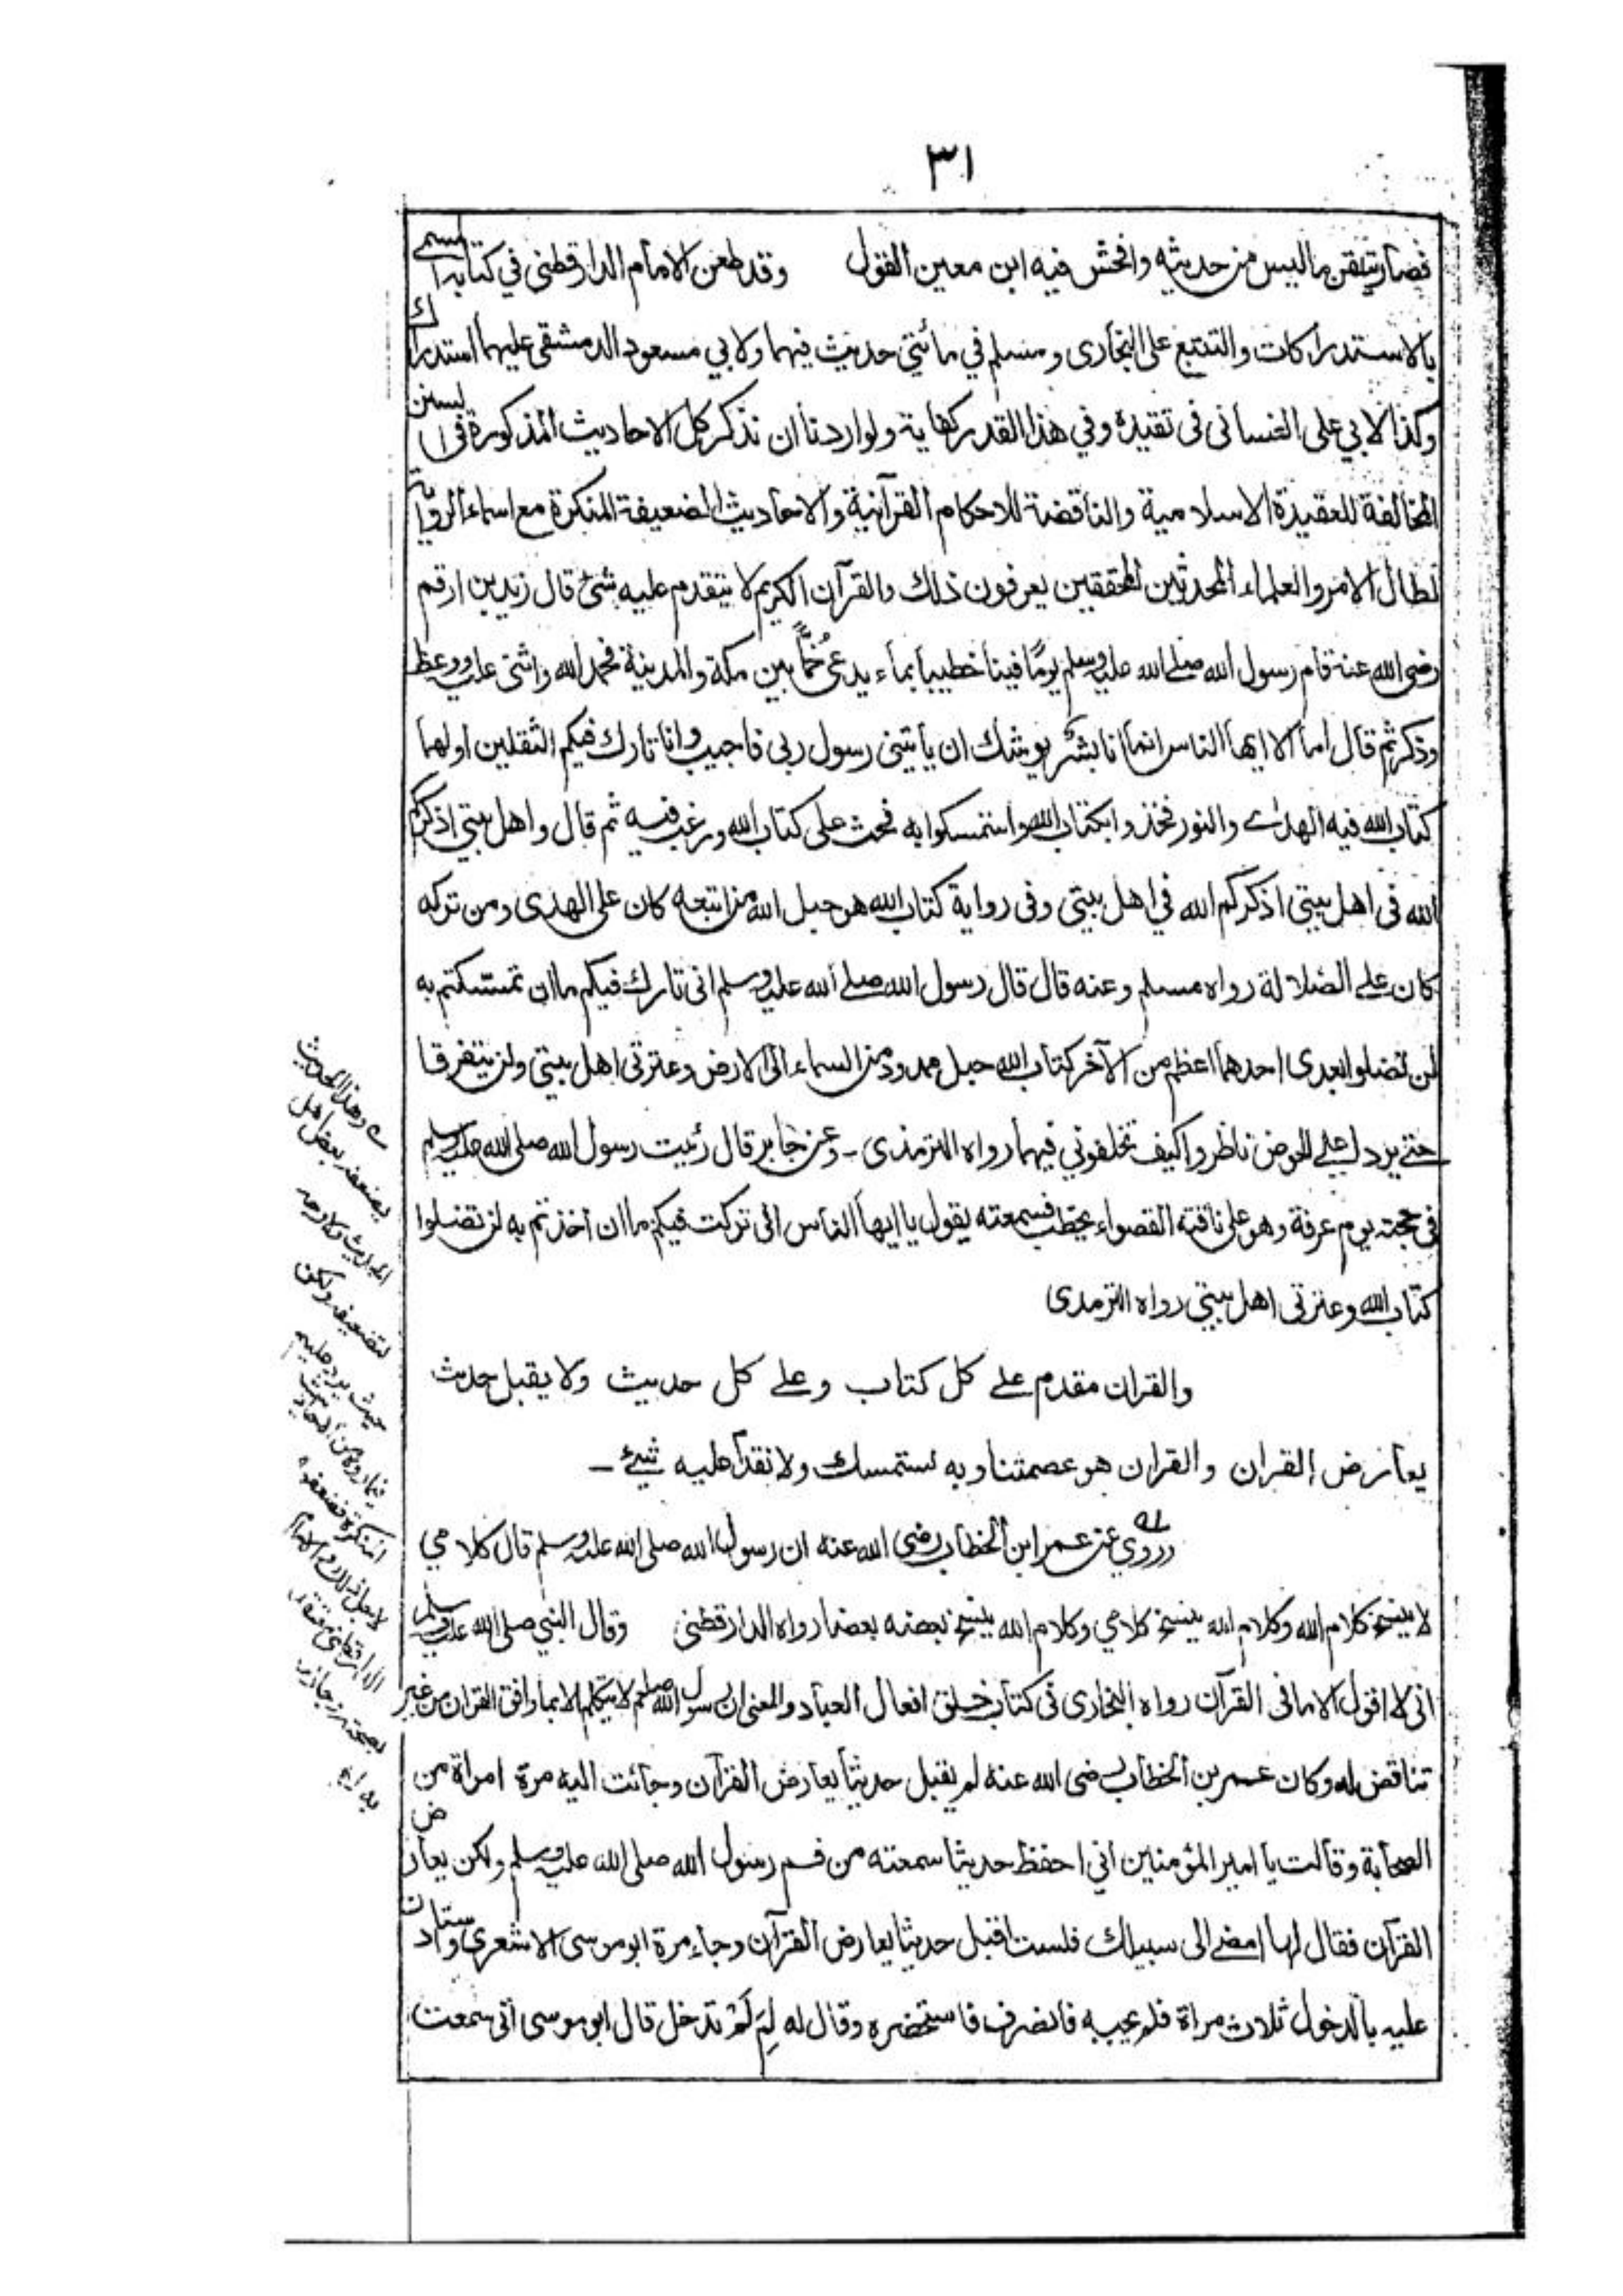 ٣١
فصار يتلقن ما ليس من حديثه وافحش فيه ابن معين القول وقد طعن الامام الدارقطني في كتابه المسمى
بالاستدراكات والتتبع على البخارى ومسلم في مأئتي حديث فيهما ولابي مسعود الدمشقى عليهما استدراك
وكذا لابي على الغسانى فى تقيده وفي هذا القدر كفاية ولو اردنا ان نذكر كل الاحاديث المذكورة فى السنن
المخالفة للعقيدة الاسلامية والناقضة للاحكام القرآنية والاحاديث الضعيفة المنكرة مع اسماء الرواية
لطال الامر والعلماء المحدثين المحققين يعرفون ذلك والقرآن الكريم لا يتقدم عليه شئ قال زيد بن ارقم
رضى الله عنه قام رسول الله صلے الله عليه وسلم يومًا فينا خطيبا بماء يدعى خُمًّا بين مكة والمدينة فحمد الله واثنى عليه ووعظ
وذكر ثم قال اما الا ايها الناس انما انا بشر يوشك ان يأتينى رسول ربى فاجيب وانا تارك فيكم الثقلين اولهما
كتاب الله فيه الهدى والنور فخذوا بكتاب الله واستمسكوا به فحث على كتاب الله ورغب فيه ثم قال واهل بيتي اذكركم
الله فى اهل بيتي اذكركم الله في اهل بيتي وفى رواية كتاب الله هو حبل الله من اتبعه كان على الهدى ومن تركه
كان علے الضلالة رواه مسلم وعنه قال قال رسول الله صلے الله عليه وسلم انى تارك فيكم ما ان تمسكتم به
لن تضلوا بعدى احدهما اعظم من الآخر كتاب الله حبل ممدود من السماء الى الارض وعترتى اهل بيتي ولن يتفرقا
حتے يردا علے الحوض ناظروا كيف تخلفوني فيهما رواه الترمذى - وعن جابر قال رئيت رسول الله صلى الله عليه وسلم
فى حجته يوم عرفة وهو على ناقته القصواء يخطب فسمعته يقول يا ايها الناس انى تركت فيكم ما ان اخذتم به لن تضلوا
كتاب الله وعترتى اهل بيتي رواه الترمذى
والقران مقدم علے كل كتاب وعلے كل حديث ولا يقبل حديث
يعارض القران والقران هو عصمتنا وبه نستمسك ولا نقدم عليه شئ -
وروي عن عمر ابن الخطاب رضى الله عنه ان رسول الله صلى الله عليه وسلم قال كلامي
لا ينسخ كلام الله وكلام الله ينسخ كلامي وكلام الله ينسخ بعضه بعضا رواه الدارقطنى وقال النبي صلى الله عليه وسلم
انى لا اقول الا ما فى القرآن رواه البخارى فى كتاب خلق افعال العباد والمعنى ان رسول الله صلعم لا يتكلم الا بما وافق القران من غير
تناقض له وكان عمر بن الخطاب رضى الله عنه لم يقبل حديثا يعارض القرآن وجائت اليه مرة امراة من
الصحابة وقالت يا امير المؤمنين اني احفظ حديثا سمعته من فم رسول الله صلى الله عليه وسلم ولكن يعارض
القرآن فقال لها امضے الى سبيلك فلست اقبل حديثا يعارض القرآن وجاء مرة ابو موسى الاشعرى واستاذن
عليه بالدخول ثلاث مراة فلم يجبه فانصرف فاستحضره وقال له لِمَ لَمْ تدخل قال ابو موسى انى سمعت
وهذا الحديث
يضعفه بعض اهل
الحديث ولا وجه
لتضعيفه ولكن
حيث يرد عليهم
المنكرة فضعفوه
لاجل ذلك والامام